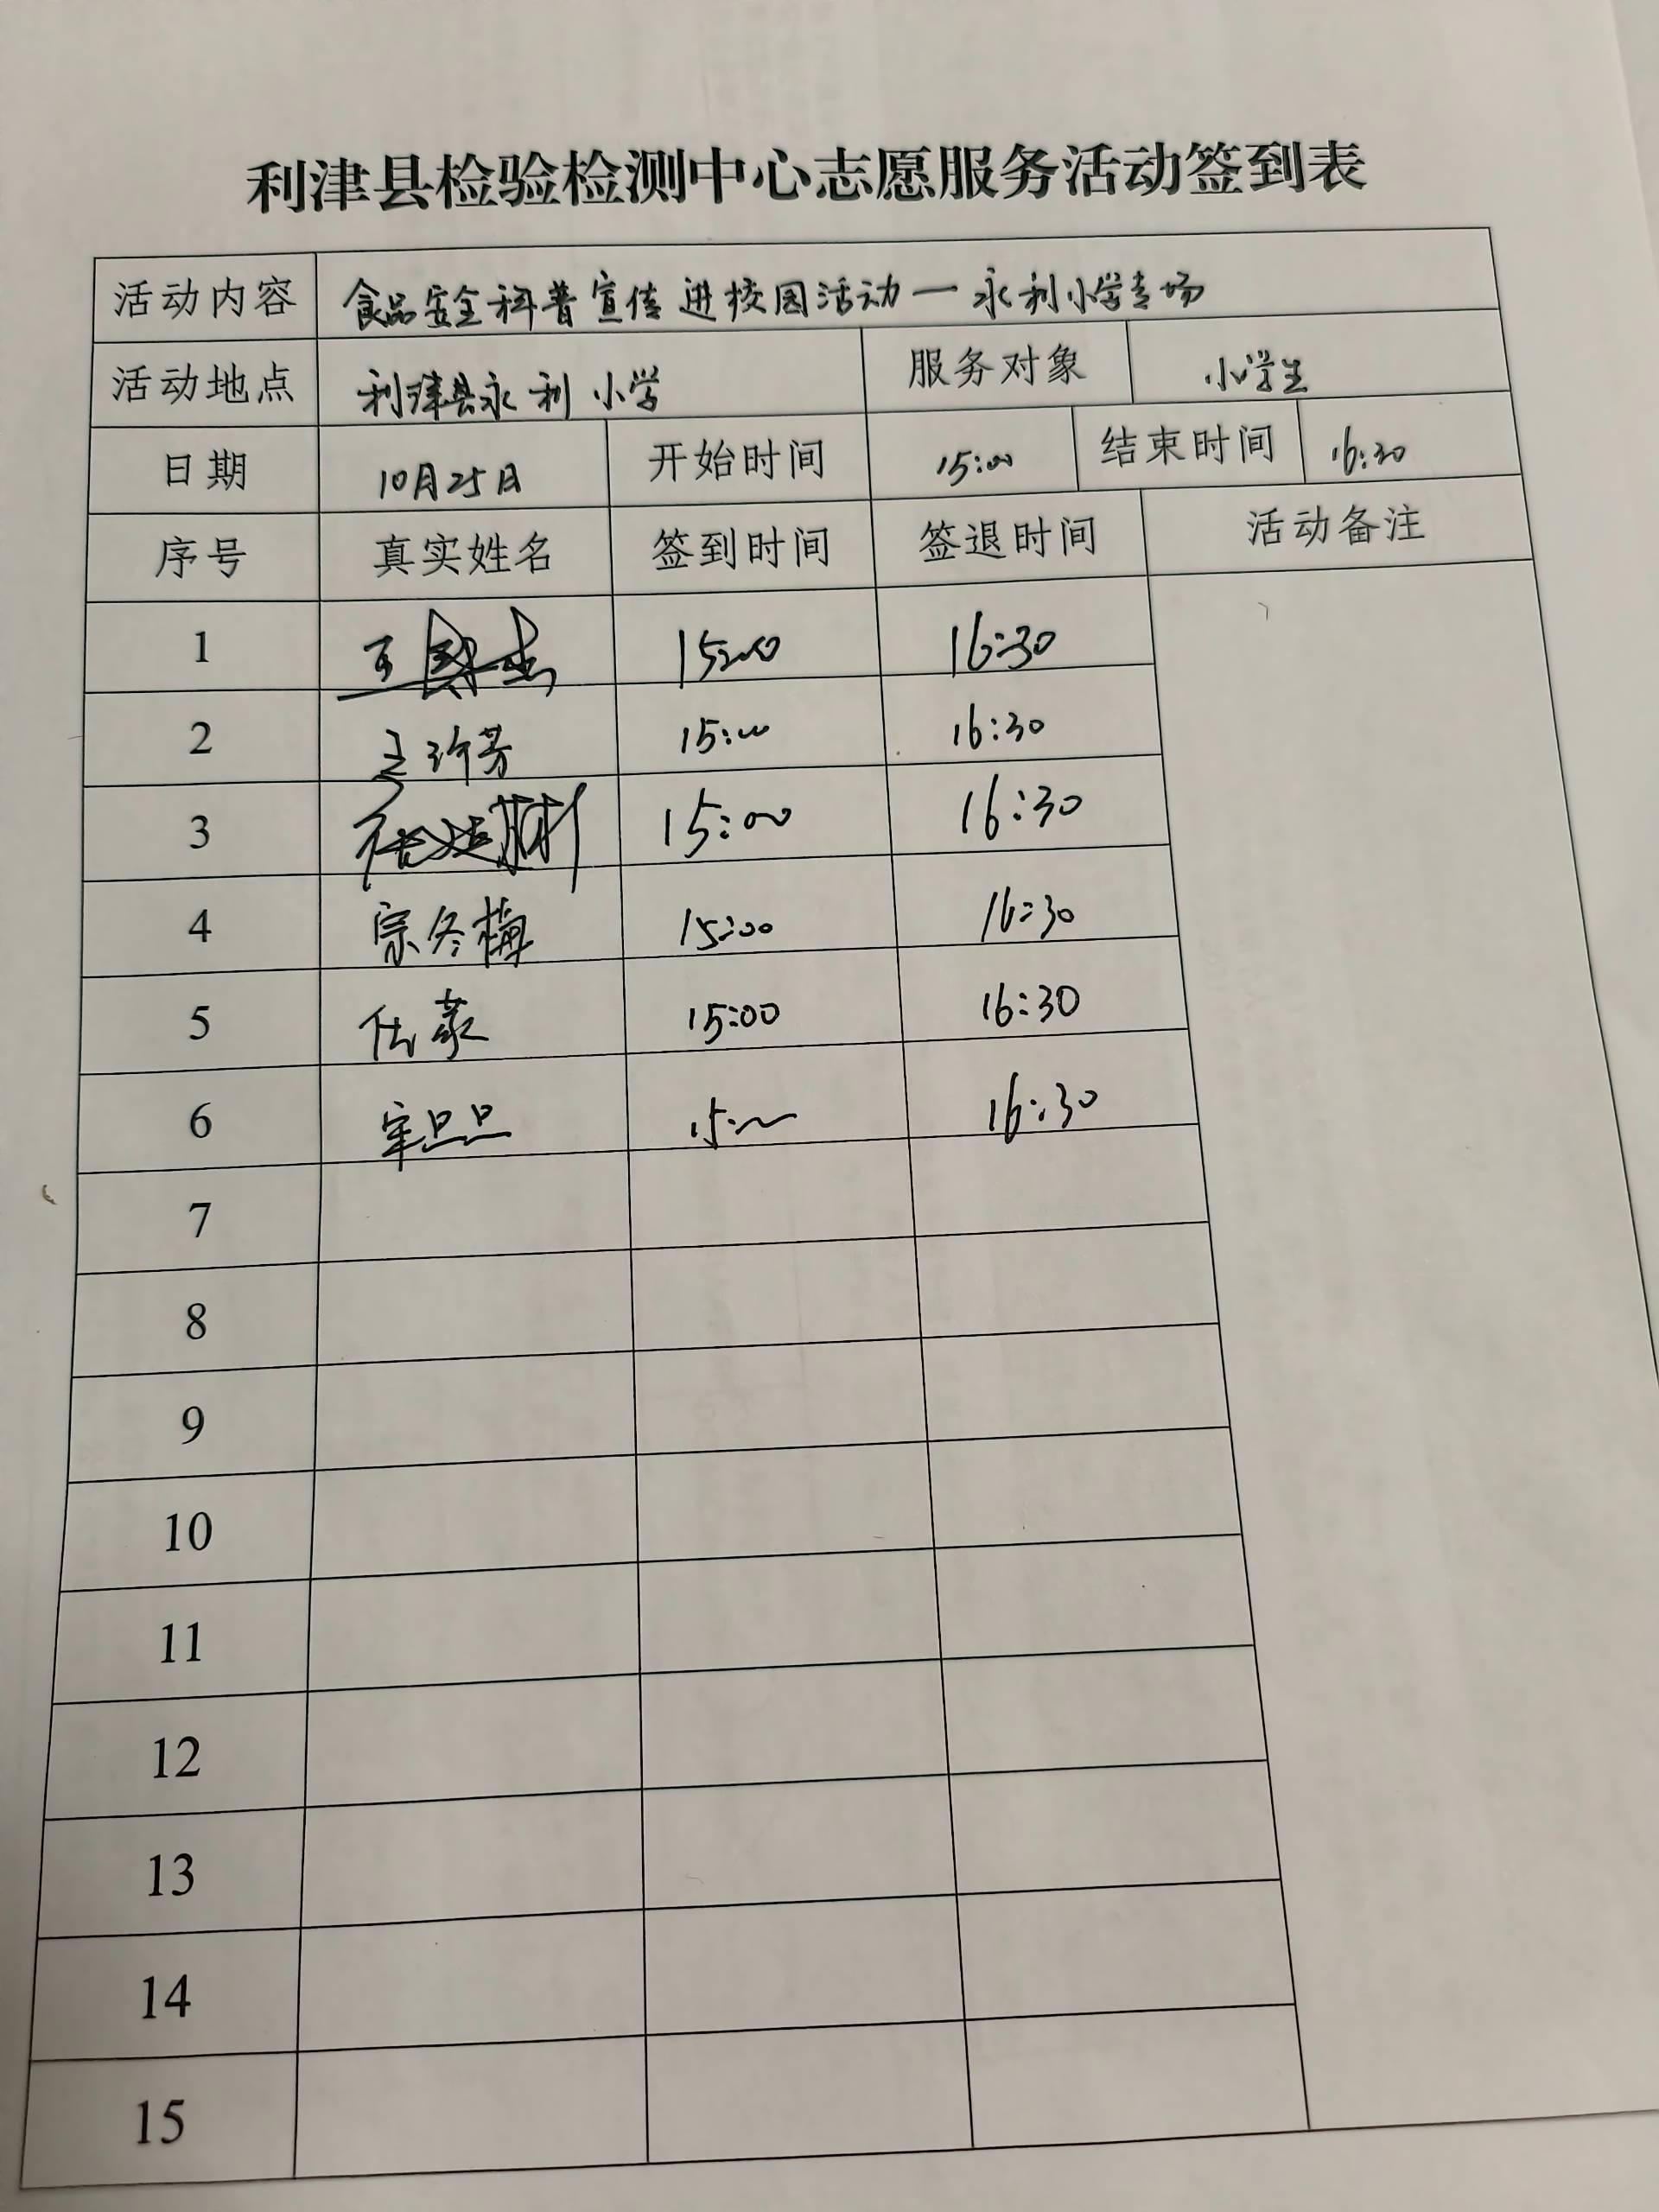 利津县检验检测中心志愿服务活动签到表
活动内容 食品安全科普宣传进校园活动一永利小学专场
活动地点 利津县永利小学 服务对象 小学生
日期 10月25日 开始时间 15:00 结束时间 16:30
序号 真实姓名 签到时间 签退时间 活动备注
1 15:00 16:30
2 15:00 16:30
3 15:00 16:30
4 宗冬梅 15:00 16:30
5 15:00 16:30
6 15:00 16:30
7
8
9
10
11
12
13
14
15